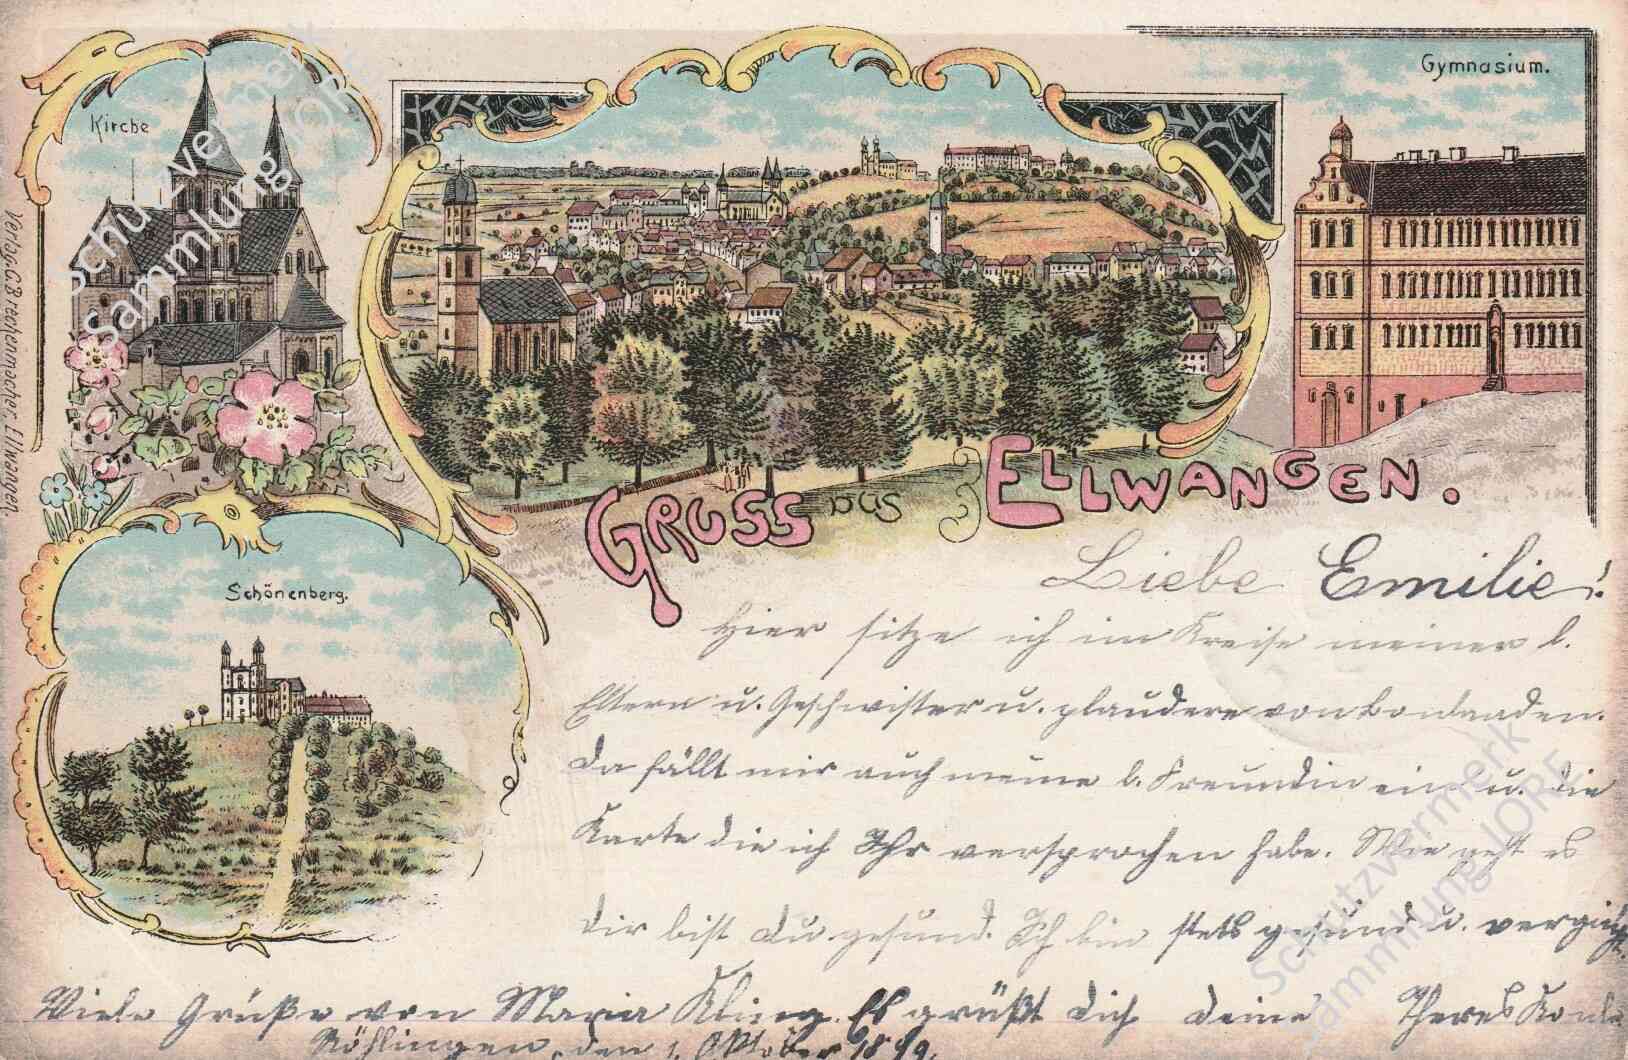 Kirche
Gymnasium.
Schönenberg.
Verlag C. Brechenmacher, Ellwangen.
GRUSS aus ELLWANGEN.
Liebe Emilie!
Hier sitze ich im Kreise meiner l.
Eltern u. Geschwister u. plaudere von Bonlanden.
Da fällt mir auch meine l. Freundin ein u. die
Karte die ich Ihr versprochen habe. Wie geht es
dir bist du gesund. Ich bin stets gesund u. vergnügt.
Viele Grüße von Maria Kling. Es grüßt dich deine Theres
Röhlingen, den 1. Oktober 1899.
Schutzvermerk
Sammlung JORE
Schutzvermerk
Sammlung JORE